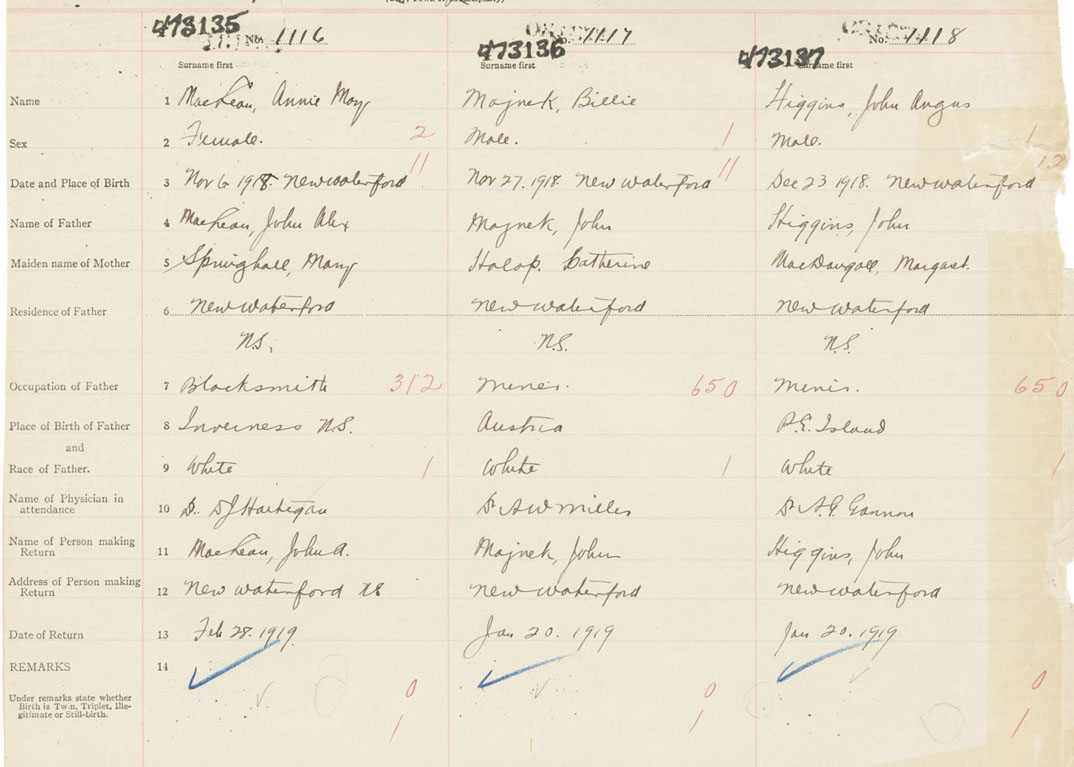 473135 No. 1116 473136 No. 1117 473137 No. 1118
Surname first Surname first Surname first
Name 1 MacLean, Annie May Majnek, Billie Higgins, John Angus
Sex 2 Female. 2 Male. 1 Male. 1
11 11 12
Date and Place of Birth 3 Nov 6 1918. New Waterford Nov 27. 1918. New Waterford Dec 23 1918. New Waterford
Name of Father 4 MacLean, John Alex Majnek, John Higgins, John
Maiden name of Mother 5 Springhall, Mary Holop. Catherine MacDougall, Margaret.
Residence of Father 6 New Waterford New Waterford New Waterford
N.S. N.S. N.S.
Occupation of Father 7 Blacksmith 312 Miner. 650 Miner. 650
Place of Birth of Father 8 Inverness N.S. Austria P.E. Island
and
Race of Father. 9 White 1 White 1 White 1
Name of Physician in
attendance 10 Dr. DJ Hartigan Dr AW Miller Dr A.G. Gannon
Name of Person making
Return 11 MacLean, John A. Majnek, John Higgins, John
Address of Person making
Return 12 New Waterford NS New Waterford New Waterford
Date of Return 13 Feb 28. 1919 Jan 20. 1919 Jan 20. 1919
REMARKS 14
Under remarks state whether
Birth is Twin, Triplet, Ille-
gitimate or Still-birth.
0 0 0
1 1 1